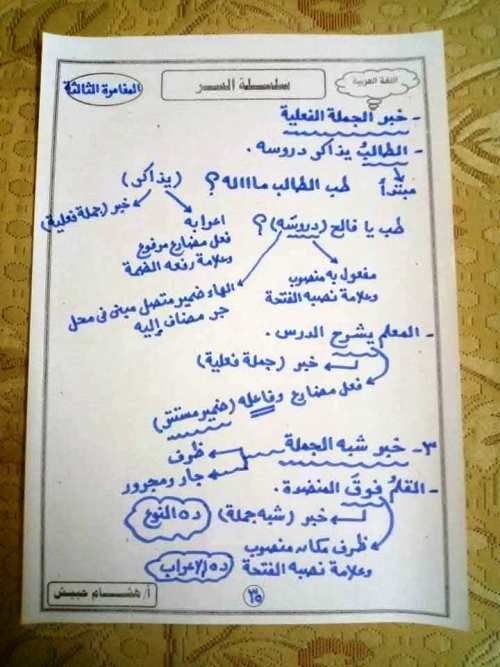 اللغة العربية
سلسلة السر
المغامرة الثالثة
- خبر الجملة الفعلية
- الطالبُ يذاكر دروسه .
مبتدأ طب الطالب مااااله ؟ (يذاكر)
خبر (جملة فعلية)
اعرابه
فعل مضارع مرفوع
وعلامة رفعه الضمة
طب يا فالح (دروسَه) ؟
مفعول به منصوب
وعلامة نصبه الفتحة
الهاء ضمير متصل مبنى فى محل
جر مضاف إليه
- المعلم يشرح الدرس .
خبر (جملة فعلية)
فعل مضارع وفاعله (ضمير مستتر)
٣- خبر شبه الجملة
ظرف
جار ومجرور
- القلمُ فوقَ المنضدة .
خبر (شبه جملة) ده النوع
ظرف مكان منصوب
وعلامة نصبه الفتحة ده الإعراب
٣٥
أ/ هشام حبيش